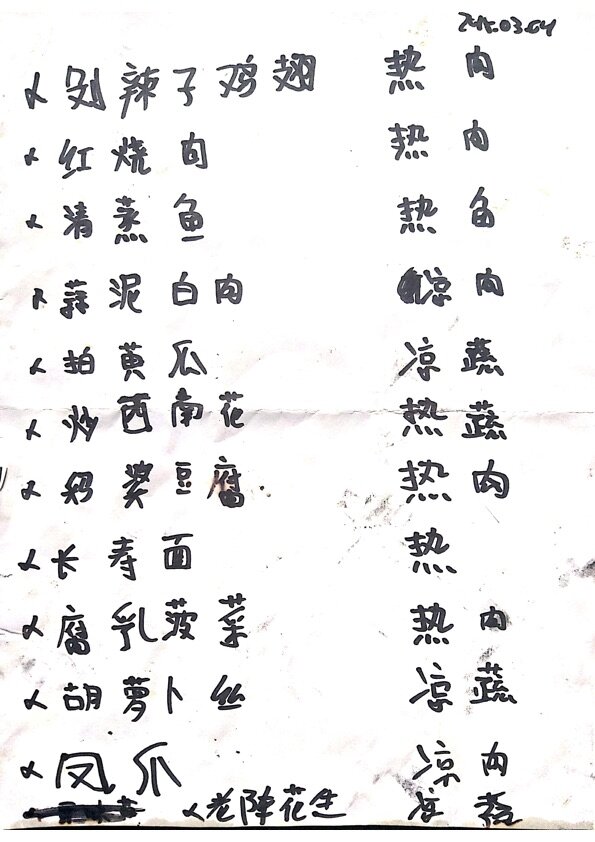 2025.03.04
剁辣子鸡翅 热 肉
红烧肉 热 肉
清蒸鱼 热 鱼
蒜泥白肉 凉 肉
拍黄瓜 凉 蔬
炒西南花 热 蔬
豆腐 热 肉
长寿面 热
腐乳菠菜 热 肉
胡萝卜丝 凉 蔬
凤爪 凉 肉
老陈花生 凉